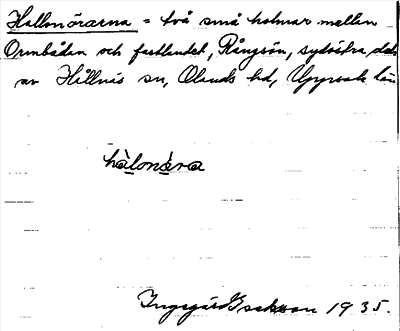 Hallonörarna = två små holmar mellan
Ormbådan och fastlandet, Rångsön, sydöstra del
av Hållnäs sn, Olands hd, Uppsala län
hålonǝra
Ingegärd Isaksson 1935.